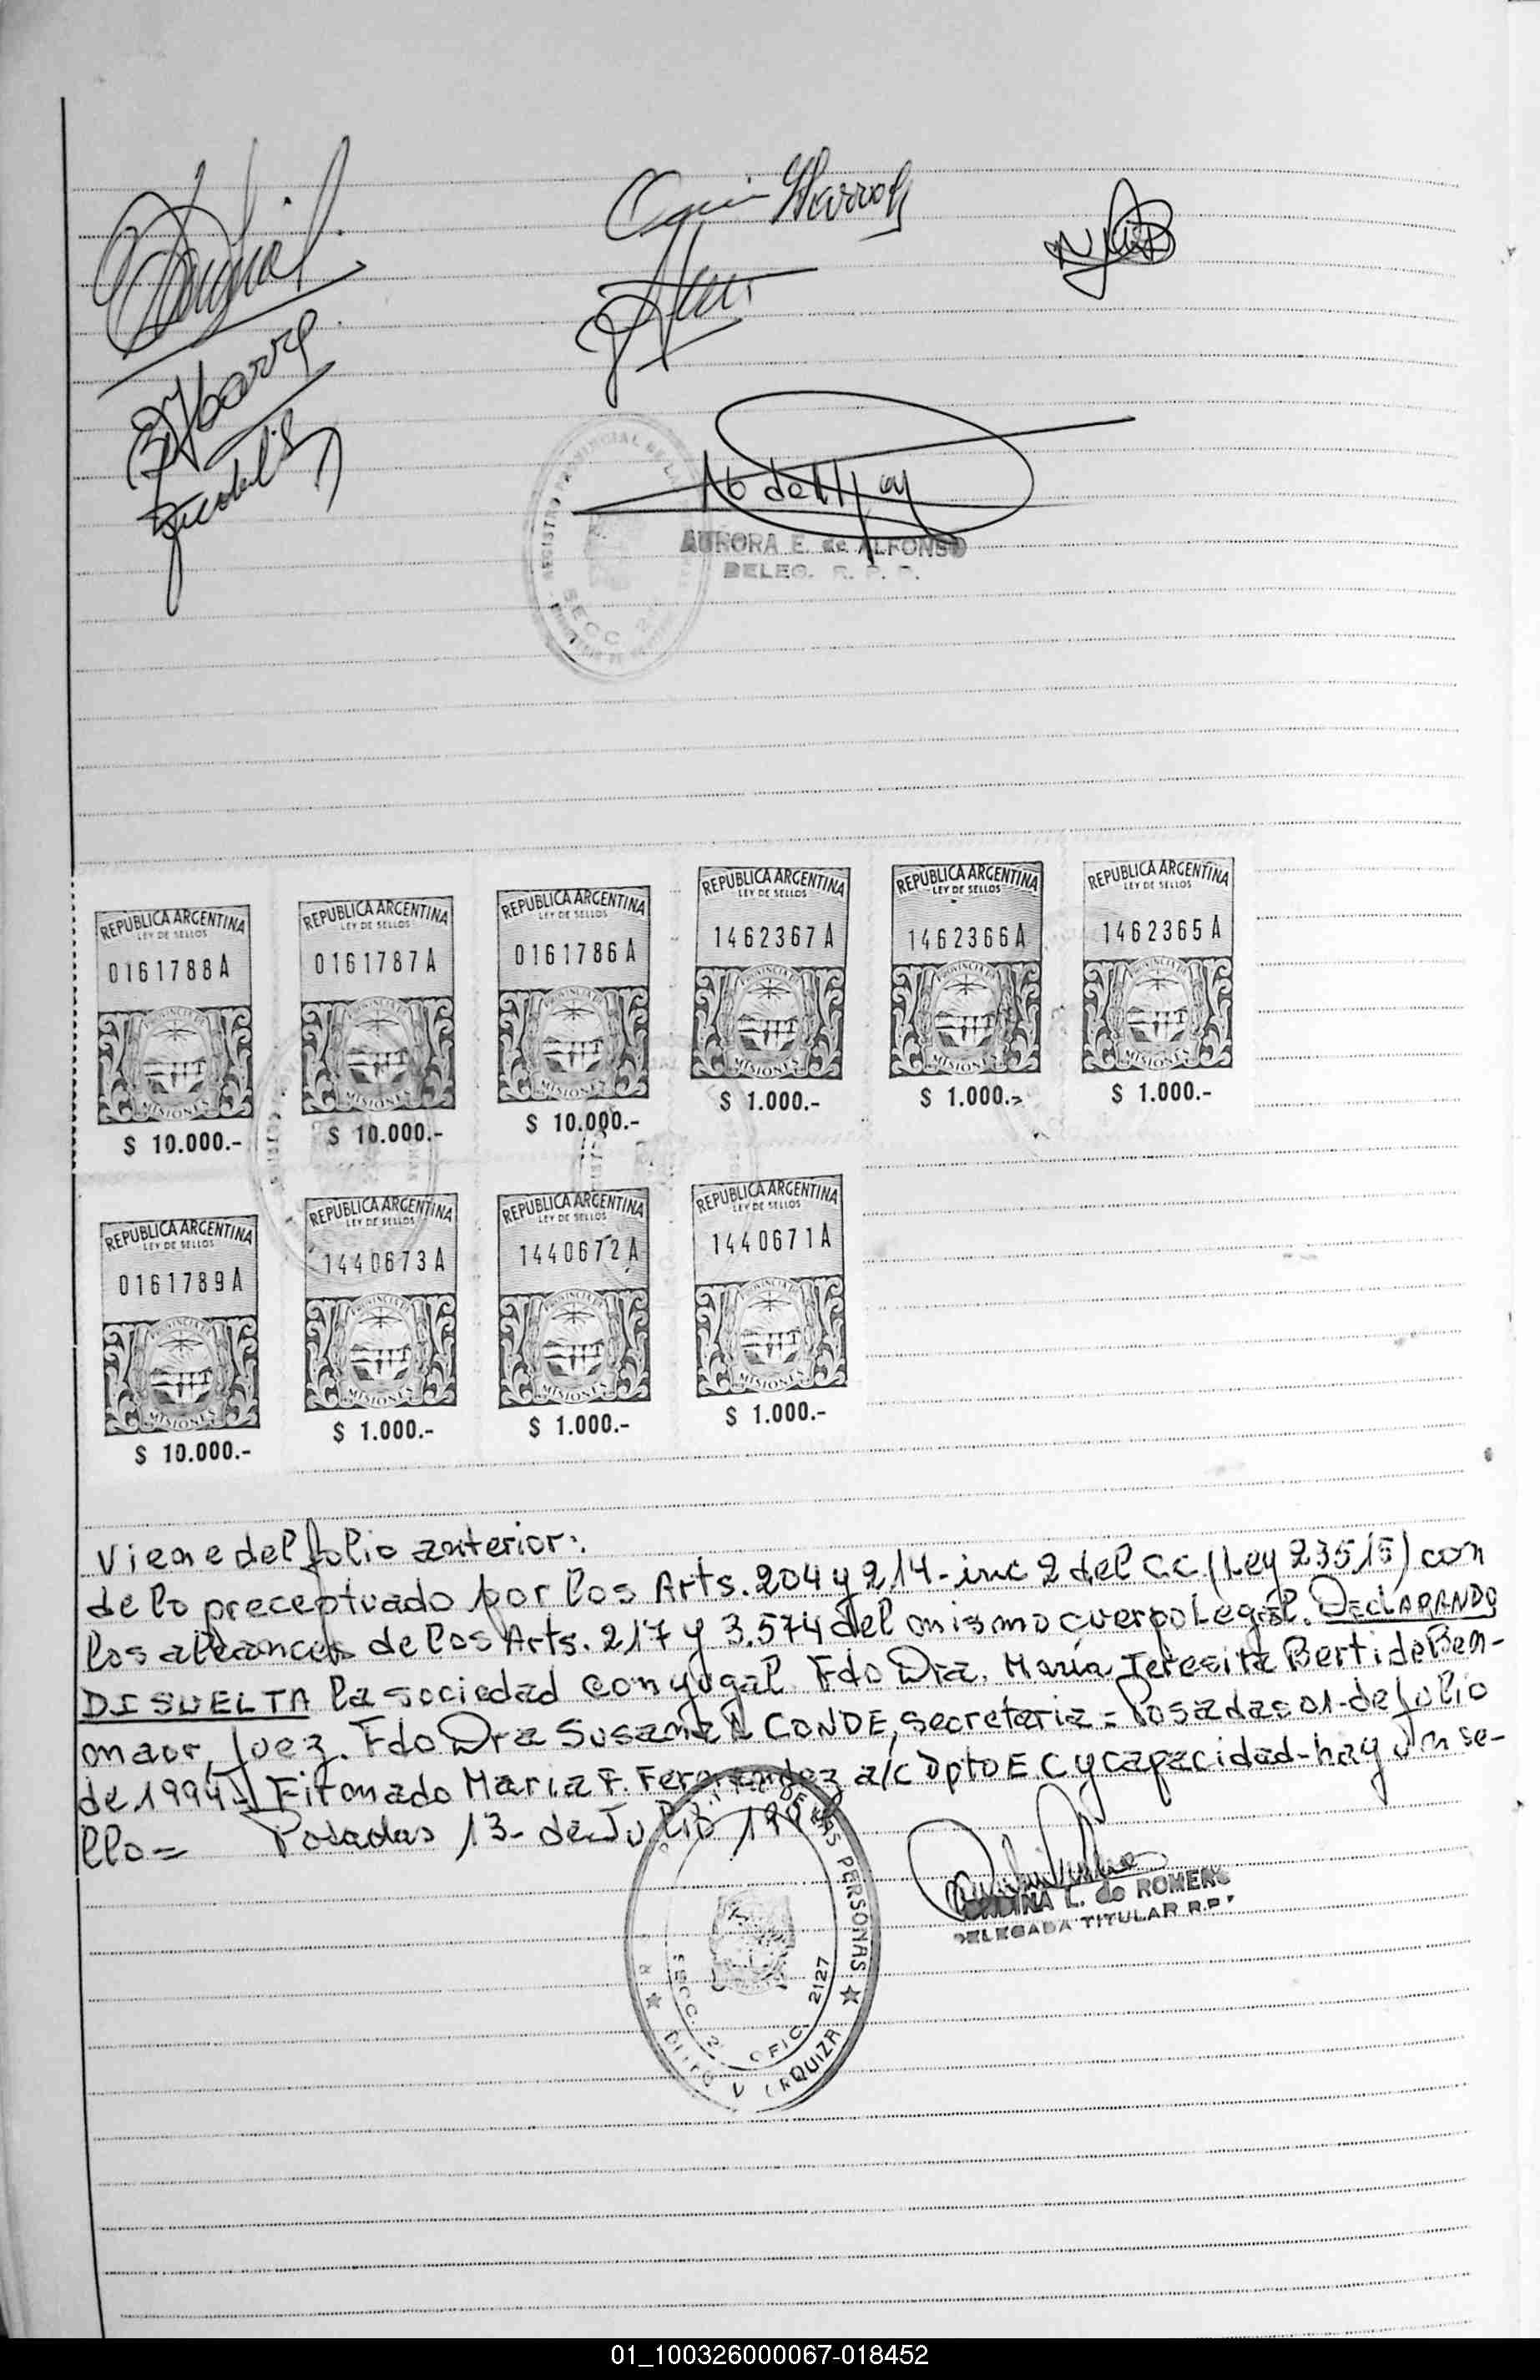 Ibarra
AURORA E. de ALFONSO
DELEG. R. P. P.
REGISTRO PROVINCIAL DE LAS
SECC. 2
REPUBLICA ARGENTINA REPUBLICA ARGENTINA REPUBLICA ARGENTINA REPUBLICA ARGENTINA REPUBLICA ARGENTINA REPUBLICA ARGENTINA
LEY DE SELLOS LEY DE SELLOS LEY DE SELLOS LEY DE SELLOS LEY DE SELLOS LEY DE SELLOS
0161788A 0161787A 0161786A 1462367A 1462366A 1462365A
MISIONES MISIONES MISIONES MISIONES MISIONES MISIONES
$ 10.000.- $ 10.000.- $ 10.000.- $ 1.000.- $ 1.000.- $ 1.000.-
REPUBLICA ARGENTINA REPUBLICA ARGENTINA REPUBLICA ARGENTINA REPUBLICA ARGENTINA
LEY DE SELLOS LEY DE SELLOS LEY DE SELLOS LEY DE SELLOS
0161789A 1440673A 1440672A 1440671A
MISIONES MISIONES MISIONES MISIONES
$ 10.000.- $ 1.000.- $ 1.000.- $ 1.000.-
Viene del folio anterior:
de lo preceptuado por los Arts. 204 y 214- inc 2 del C.C (Ley 23515) con
los alcances de los Arts. 217 y 3.574 del mismo cuerpo Legal. DeclARANDO
DISUELTA la sociedad conyugal. Fdo Dra. María Teresita Berti de Ben-
maor, Juez. Fdo Dra Susana CONDE, secretaria = Posadas 01- de Julio
de 1994- Firmado Maria F. Fernandez a/c Dpto E C y capacidad- hay un se-
llo= Posadas 13- de Julio
L. de ROMERO
DELEGADA TITULAR R.P.
DE LAS PERSONAS
SECC. 2 OFIC. 2127
URQUIZA
01_100326000067-018452